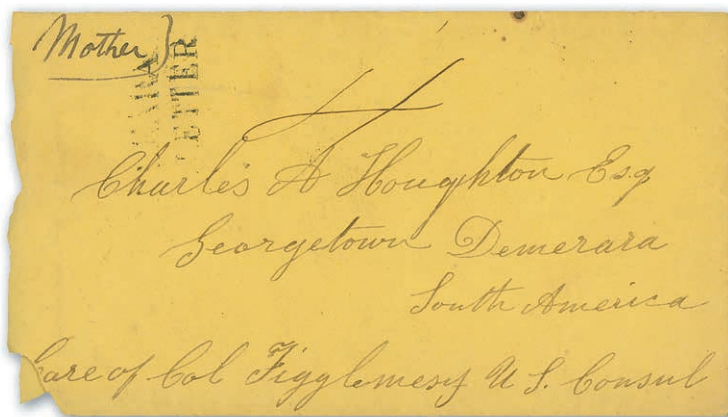 Mother
LETTER
4
Charles A Houghton Esq
Georgetown Demerara
South America
Care of Col Figglemesy U S. Consul